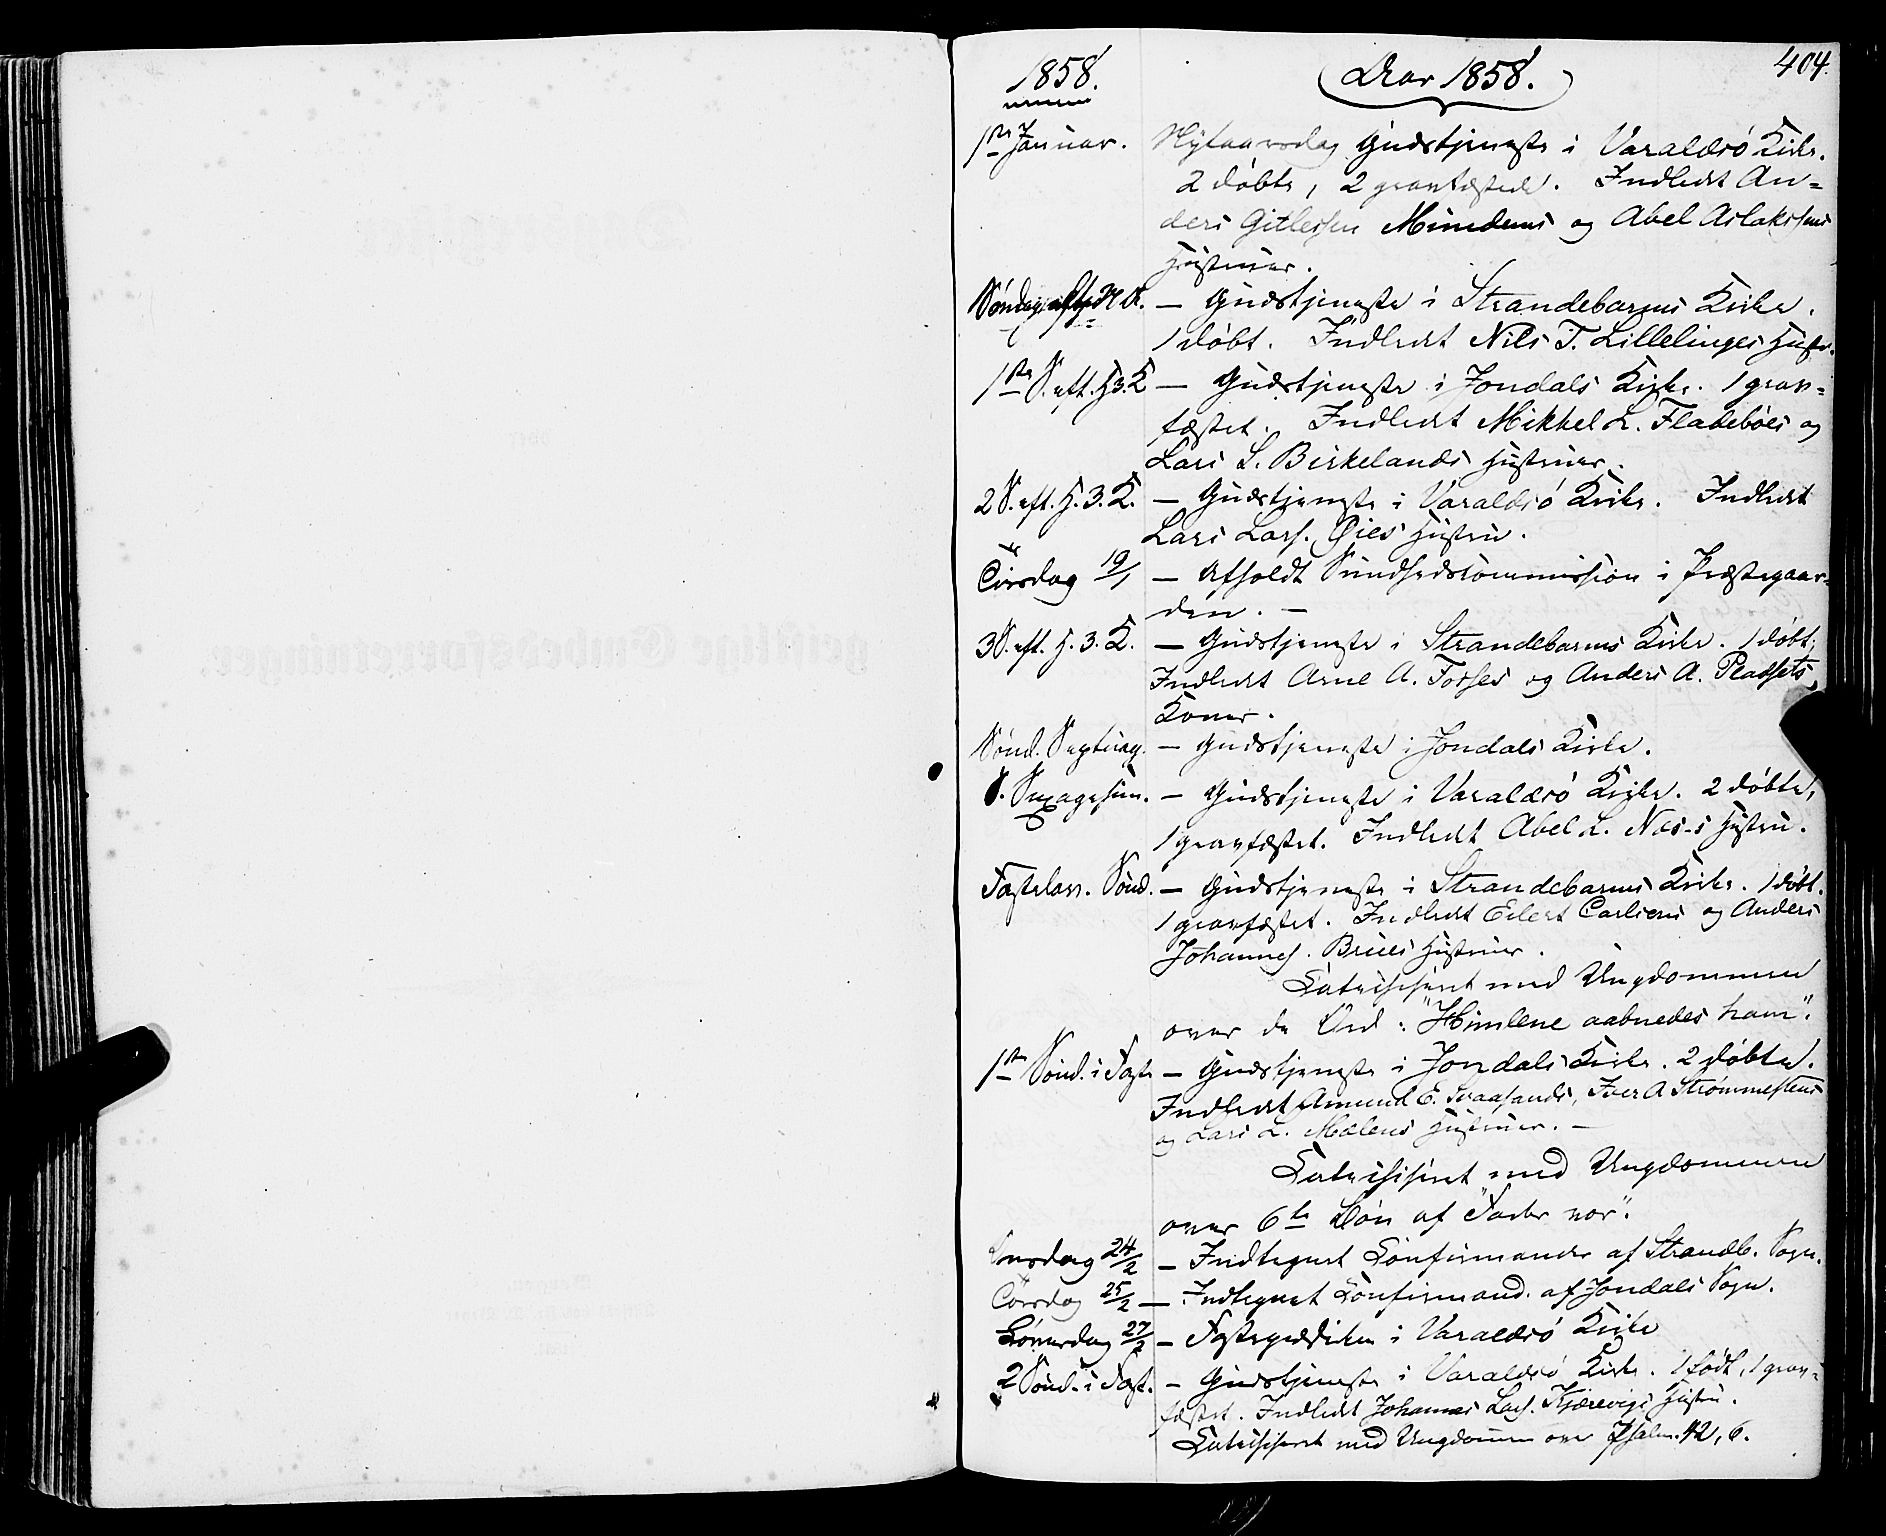 404.
1858. Aar 1858.
1ste Januar. Nytaarsdag Gudstjeneste i Varaldsö Kirke.
2 döbte, 2 gravfæstede. Indledt An=
ders Gitlesen Mundems og Abel Aslaksens
Hustruer.
Söndag efter N. A. — Gudstjeneste i Strandebarms Kirke.
1 döbt. Indledt Nils T. Lillelinges Hustr.
1ste S. eft. H. 3. K. — Gudstjeneste i Jondals Kirke. 1 grav=
fæstet. Indledt Mikkel L. Fladeböes og
Lars S. Birkelands Hustruer.
2 S. eft. H. 3. K. — Gudstjeneste i Varaldsö Kirke. Indledt
Lars Lars. Öies Hustru.
Tirsdag 19/1 — Afholdt Sundhedscommission i Præstegaar=
den. —
3 S. eft. H. 3. K. — Gudstjeneste i Strandebarms Kirke. 1 döbt;
Indledt Arne A. Fosses og Anders A. Pladsets
Koner.
Sönd. Septuag. — Gudstjeneste i Jondals Kirke.
S. Sexagesim. — Gudstjeneste i Varaldsö Kirke. 2 döbte,
1 gravfæstet. Indledt Abel L. Næs-s Hustru.
Fastelavn. Sönd. — Gudstjeneste i Strandebarms Kirke. 1 döbt.
1 gravfæstet. Indledt Eilert Carlsens og Anders
Johannes. Bruces Hustruer.
Catechiseret med Ungdommen
over de Ord: "Himlene aabnedes ham".
1ste Sönd. i Faste — Gudstjeneste i Jondals Kirke. 2 döbte.
Indledt Amund E. Svaasands, Iver A Strömmestens
og Lars L. Mælens Hustruer. —
Catechiseret med Ungdommen
over 6te Bön af "Fader vor".
Onsdag 24/2 — Indtegnet Confirmander af Strandb. Sogn.
Torsdag 25/2 — Indtegnet Confirmand. af Jondals Sogn.
Löverdag 27/2 — Fasteprædiken i Varaldsö Kirke
2 Sönd. i Fast. — Gudstjeneste i Varaldsö Kirke. 1 födt, 1 grav=
fæstet. Indledt Johannes Lars. Kjærevigs Hustru.
Catechiseret med Ungdommen over Psalm. 42, 6.